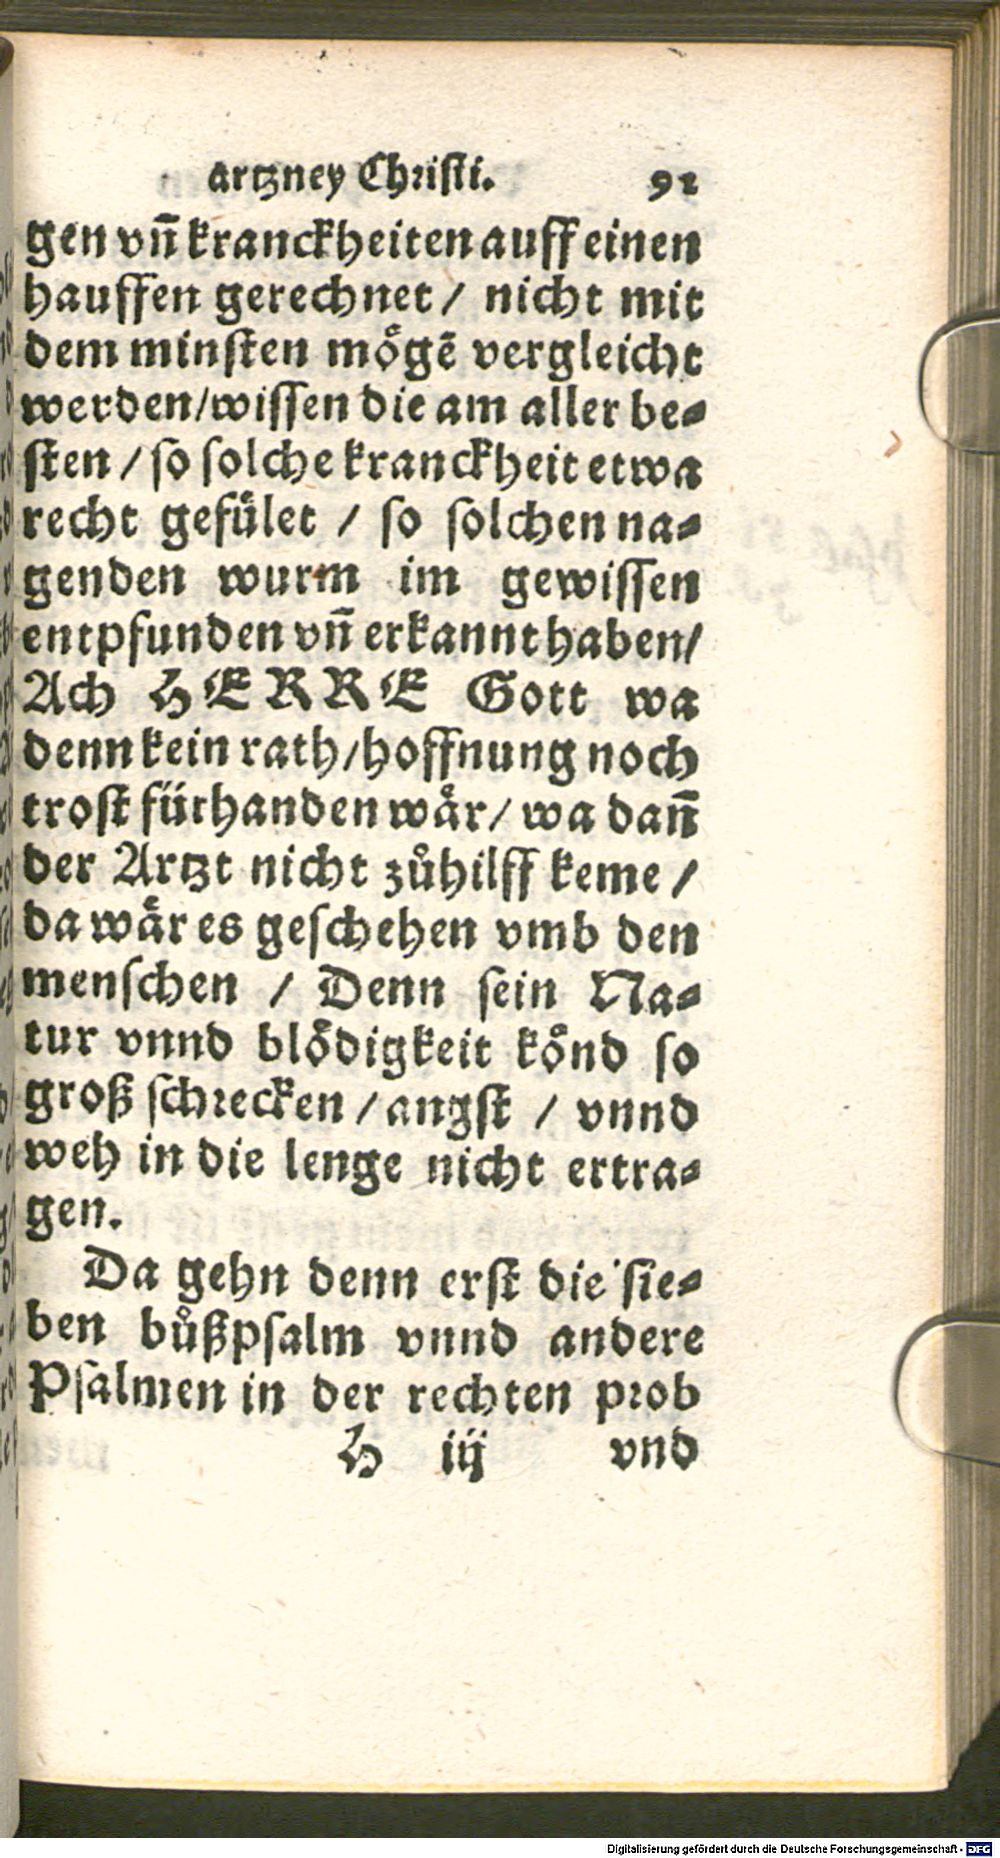 artzney Christi. 91
gen vñ kranckheiten auff einen
hauffen gerechnet / nicht mit
dem minsten moͤgẽ vergleicht
werden/wissen die am aller be⸗
sten / so solche kranckheit etwa
recht gefuͤlet / so solchen na⸗
genden wurm im gewissen
entpfunden vñ erkannt haben/
Ach HERRE Gott wa
denn kein rath/hoffnung noch
trost fürhanden waͤr/ wa dañ
der Artzt nicht zůhilff keme /
da waͤr es geschehen vmb den
menschen / Denn sein Na⸗
tur vnnd bloͤdigkeit koͤnd so
groß schrecken / angst / vnnd
weh in die lenge nicht ertra⸗
gen.
Da gehn denn erst die sie⸗
ben bůßpsalm vnnd andere
Psalmen in der rechten prob
H iij vnd
Digitalisierung gefördert durch die Deutsche Forschungsgemeinschaft - DFG